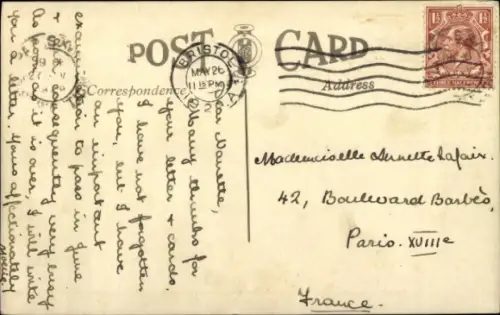 POST CARD
Correspondence
Address
BRISTOL
MAY 26
11 15 PM
Dear Nanette,
Many thanks for
your letter & cards.
I have not forgotten
you, but I have
an important
examination to pass in June
& consequently very busy
As soon as it is over, I will write
you a letter. Yours affectionately
Mademoiselle
42, Boulevard Barbès,
Paris. XVIIIe
France.